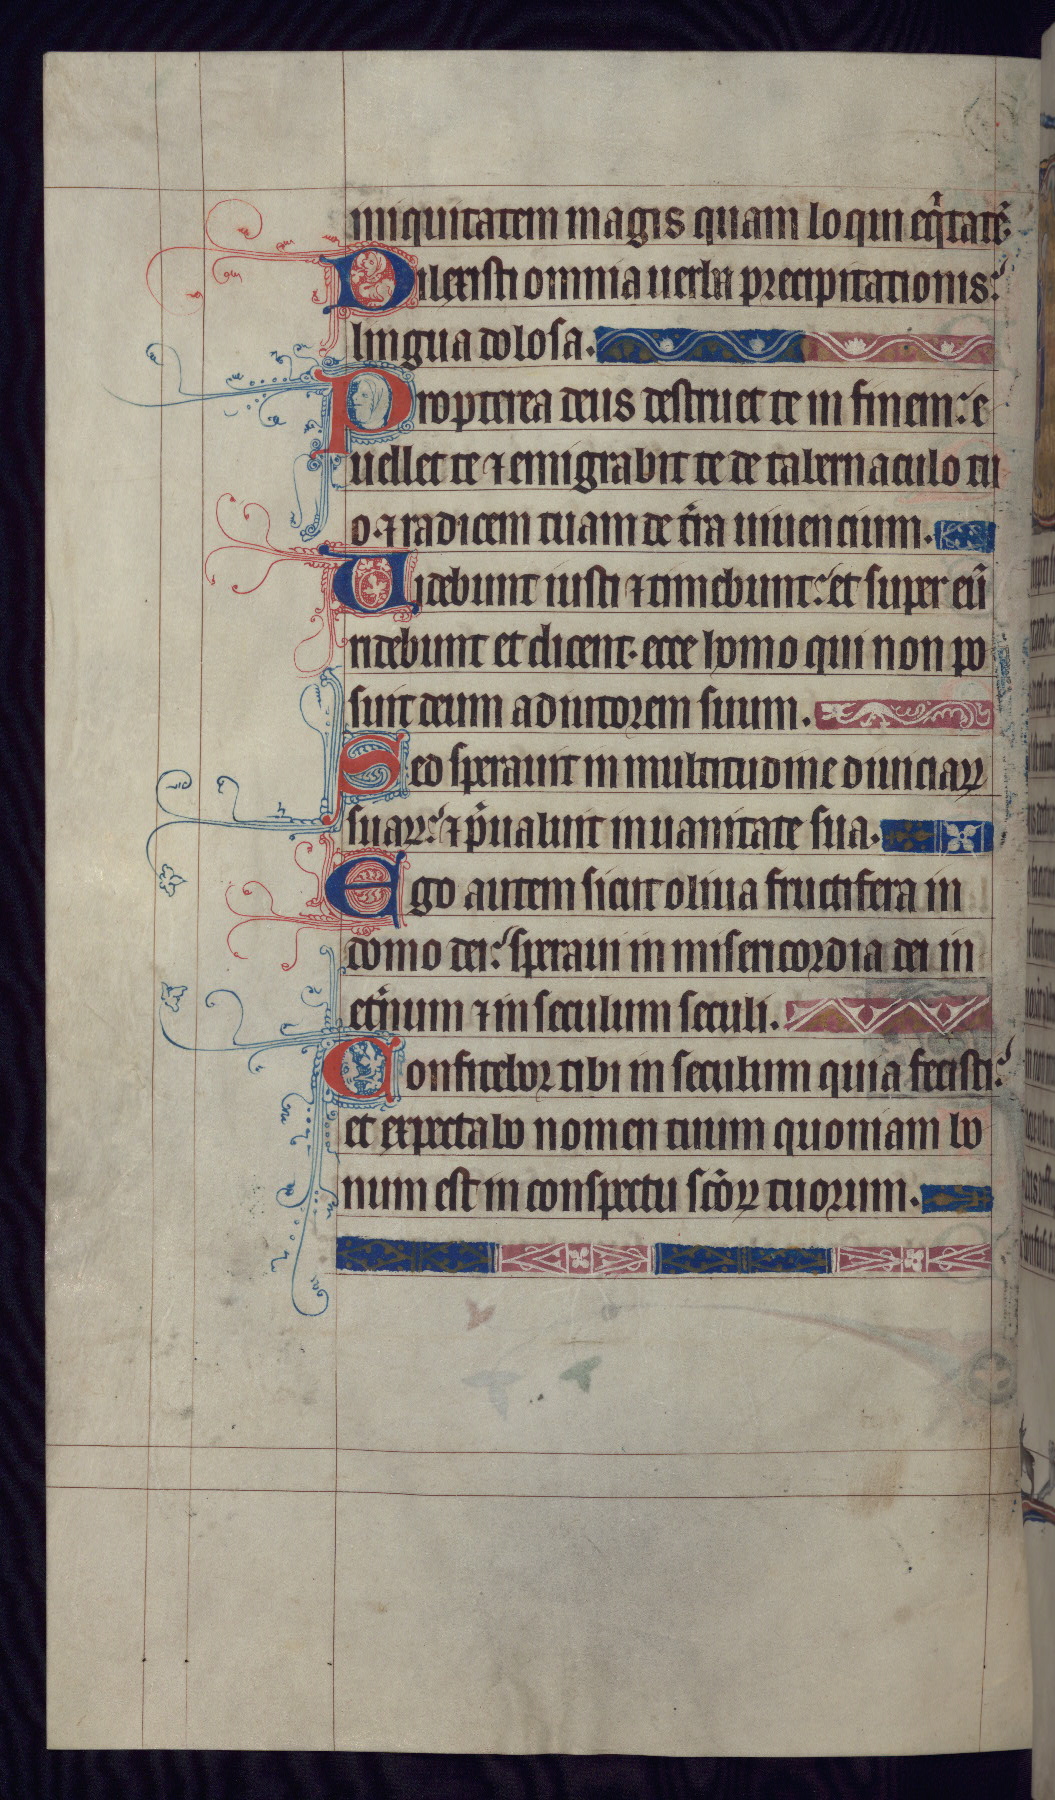 iniquitatem magis quam loqui eq̾tatē.
Dilexisti omnia uerba precipitationis:
lingua dolosa.
Propterea deus destruet te in finem: e
uellet te ⁊ emigrabit te de tabernaculo tu
o. ⁊ radicem tuam de t̾ra uiuencium.
Uidebunt iusti ⁊ timebunt: et super eū
ridebunt et dicent. ecce homo qui non po
suit deum adiutorem suum.
Sed sperauit in multitudine diuiciaꝝ
suaꝝ: ⁊ p̾ualuit in uanitate sua.
Ego autem sicut oliua fructifera in
domo dei: speraui in misericordia dei in
et̾num ⁊ in seculum seculi.
Confitebor tibi in seculum quia fecisti:
et expectabo nomen tuum quoniam bo
num est in conspectu scōꝝ tuorum.